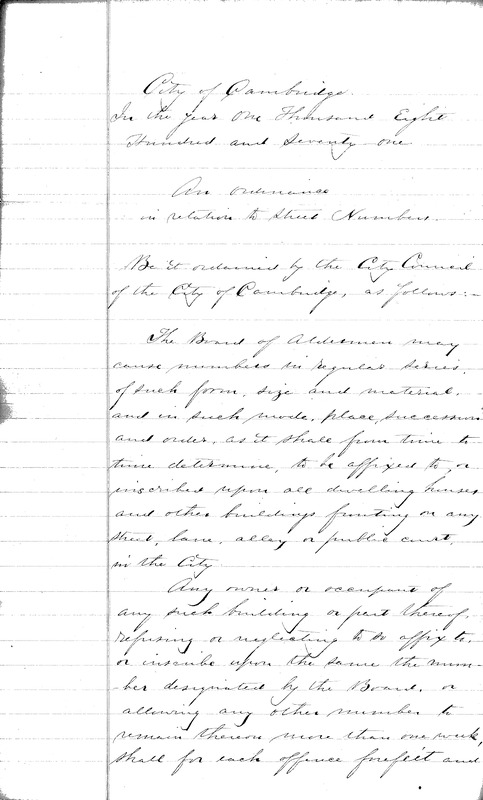 City of Cambridge.
In the year One Thousand Eight
Hundred and Seventy one
An ordinance
in relation to Street Numbers.
Be it ordained by the City Council
of the City of Cambridge, as follows:-
The Board of Aldermen may
cause numbers in regular series,
of such form, size and material,
and in such mode, place, succession
and order, as it shall from time to
time determine, to be affixed to, or
inscribed upon all dwelling houses
and other buildings fronting on any
street, lane, alley or public court,
in the City.
Any owner or occupant of
any such building or part thereof,
refusing or neglecting to so affix to,
or inscribe upon the same the num-
ber designated by the Board, or
allowing any other number to
remain thereon more than one week,
shall for each offence forefeit and